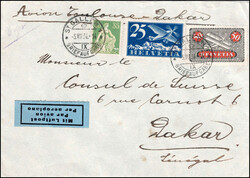 Avion Toulouse Dakar
ST. GALLEN
25
HELVETIA
HELVETIA
Monsieur le
Consul de Suisse
6 rue Carnot 6
Dakar
Sénégal
Mit Luftpost
Par avion
Par aeroplano